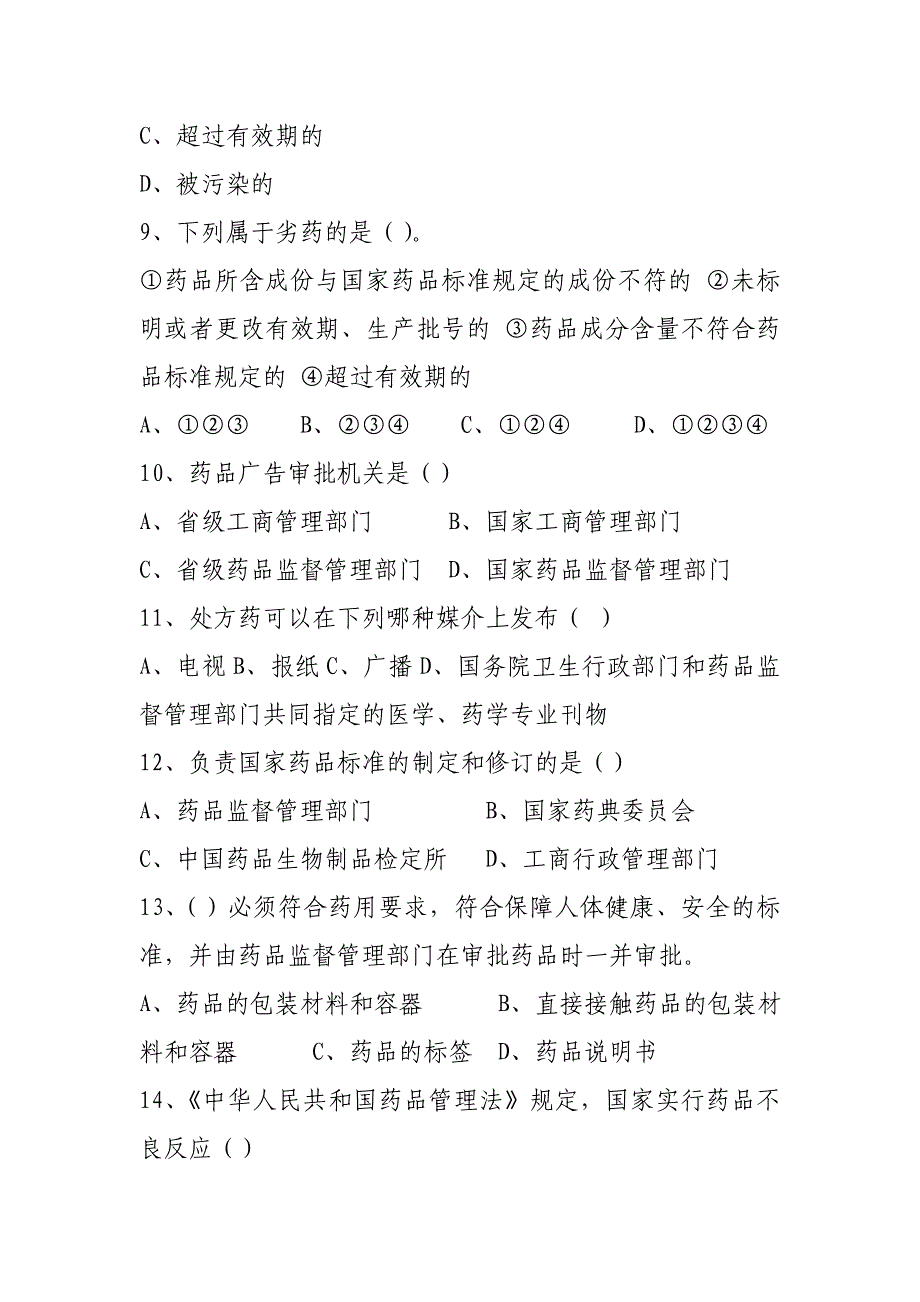 C、超过有效期的
D、被污染的
9、下列属于劣药的是（）。
①药品所含成份与国家药品标准规定的成份不符的 ②未标
明或者更改有效期、生产批号的 ③药品成分含量不符合药
品标准规定的 ④超过有效期的
A、①②③ B、②③④ C、①②④ D、①②③④
10、药品广告审批机关是（）
A、省级工商管理部门 B、国家工商管理部门
C、省级药品监督管理部门 D、国家药品监督管理部门
11、处方药可以在下列哪种媒介上发布（ ）
A、电视B、报纸C、广播D、国务院卫生行政部门和药品监
督管理部门共同指定的医学、药学专业刊物
12、负责国家药品标准的制定和修订的是（）
A、药品监督管理部门 B、国家药典委员会
C、中国药品生物制品检定所 D、工商行政管理部门
13、（）必须符合药用要求，符合保障人体健康、安全的标
准，并由药品监督管理部门在审批药品时一并审批。
A、药品的包装材料和容器 B、直接接触药品的包装材
料和容器 C、药品的标签 D、药品说明书
14、《中华人民共和国药品管理法》规定，国家实行药品不
良反应（）